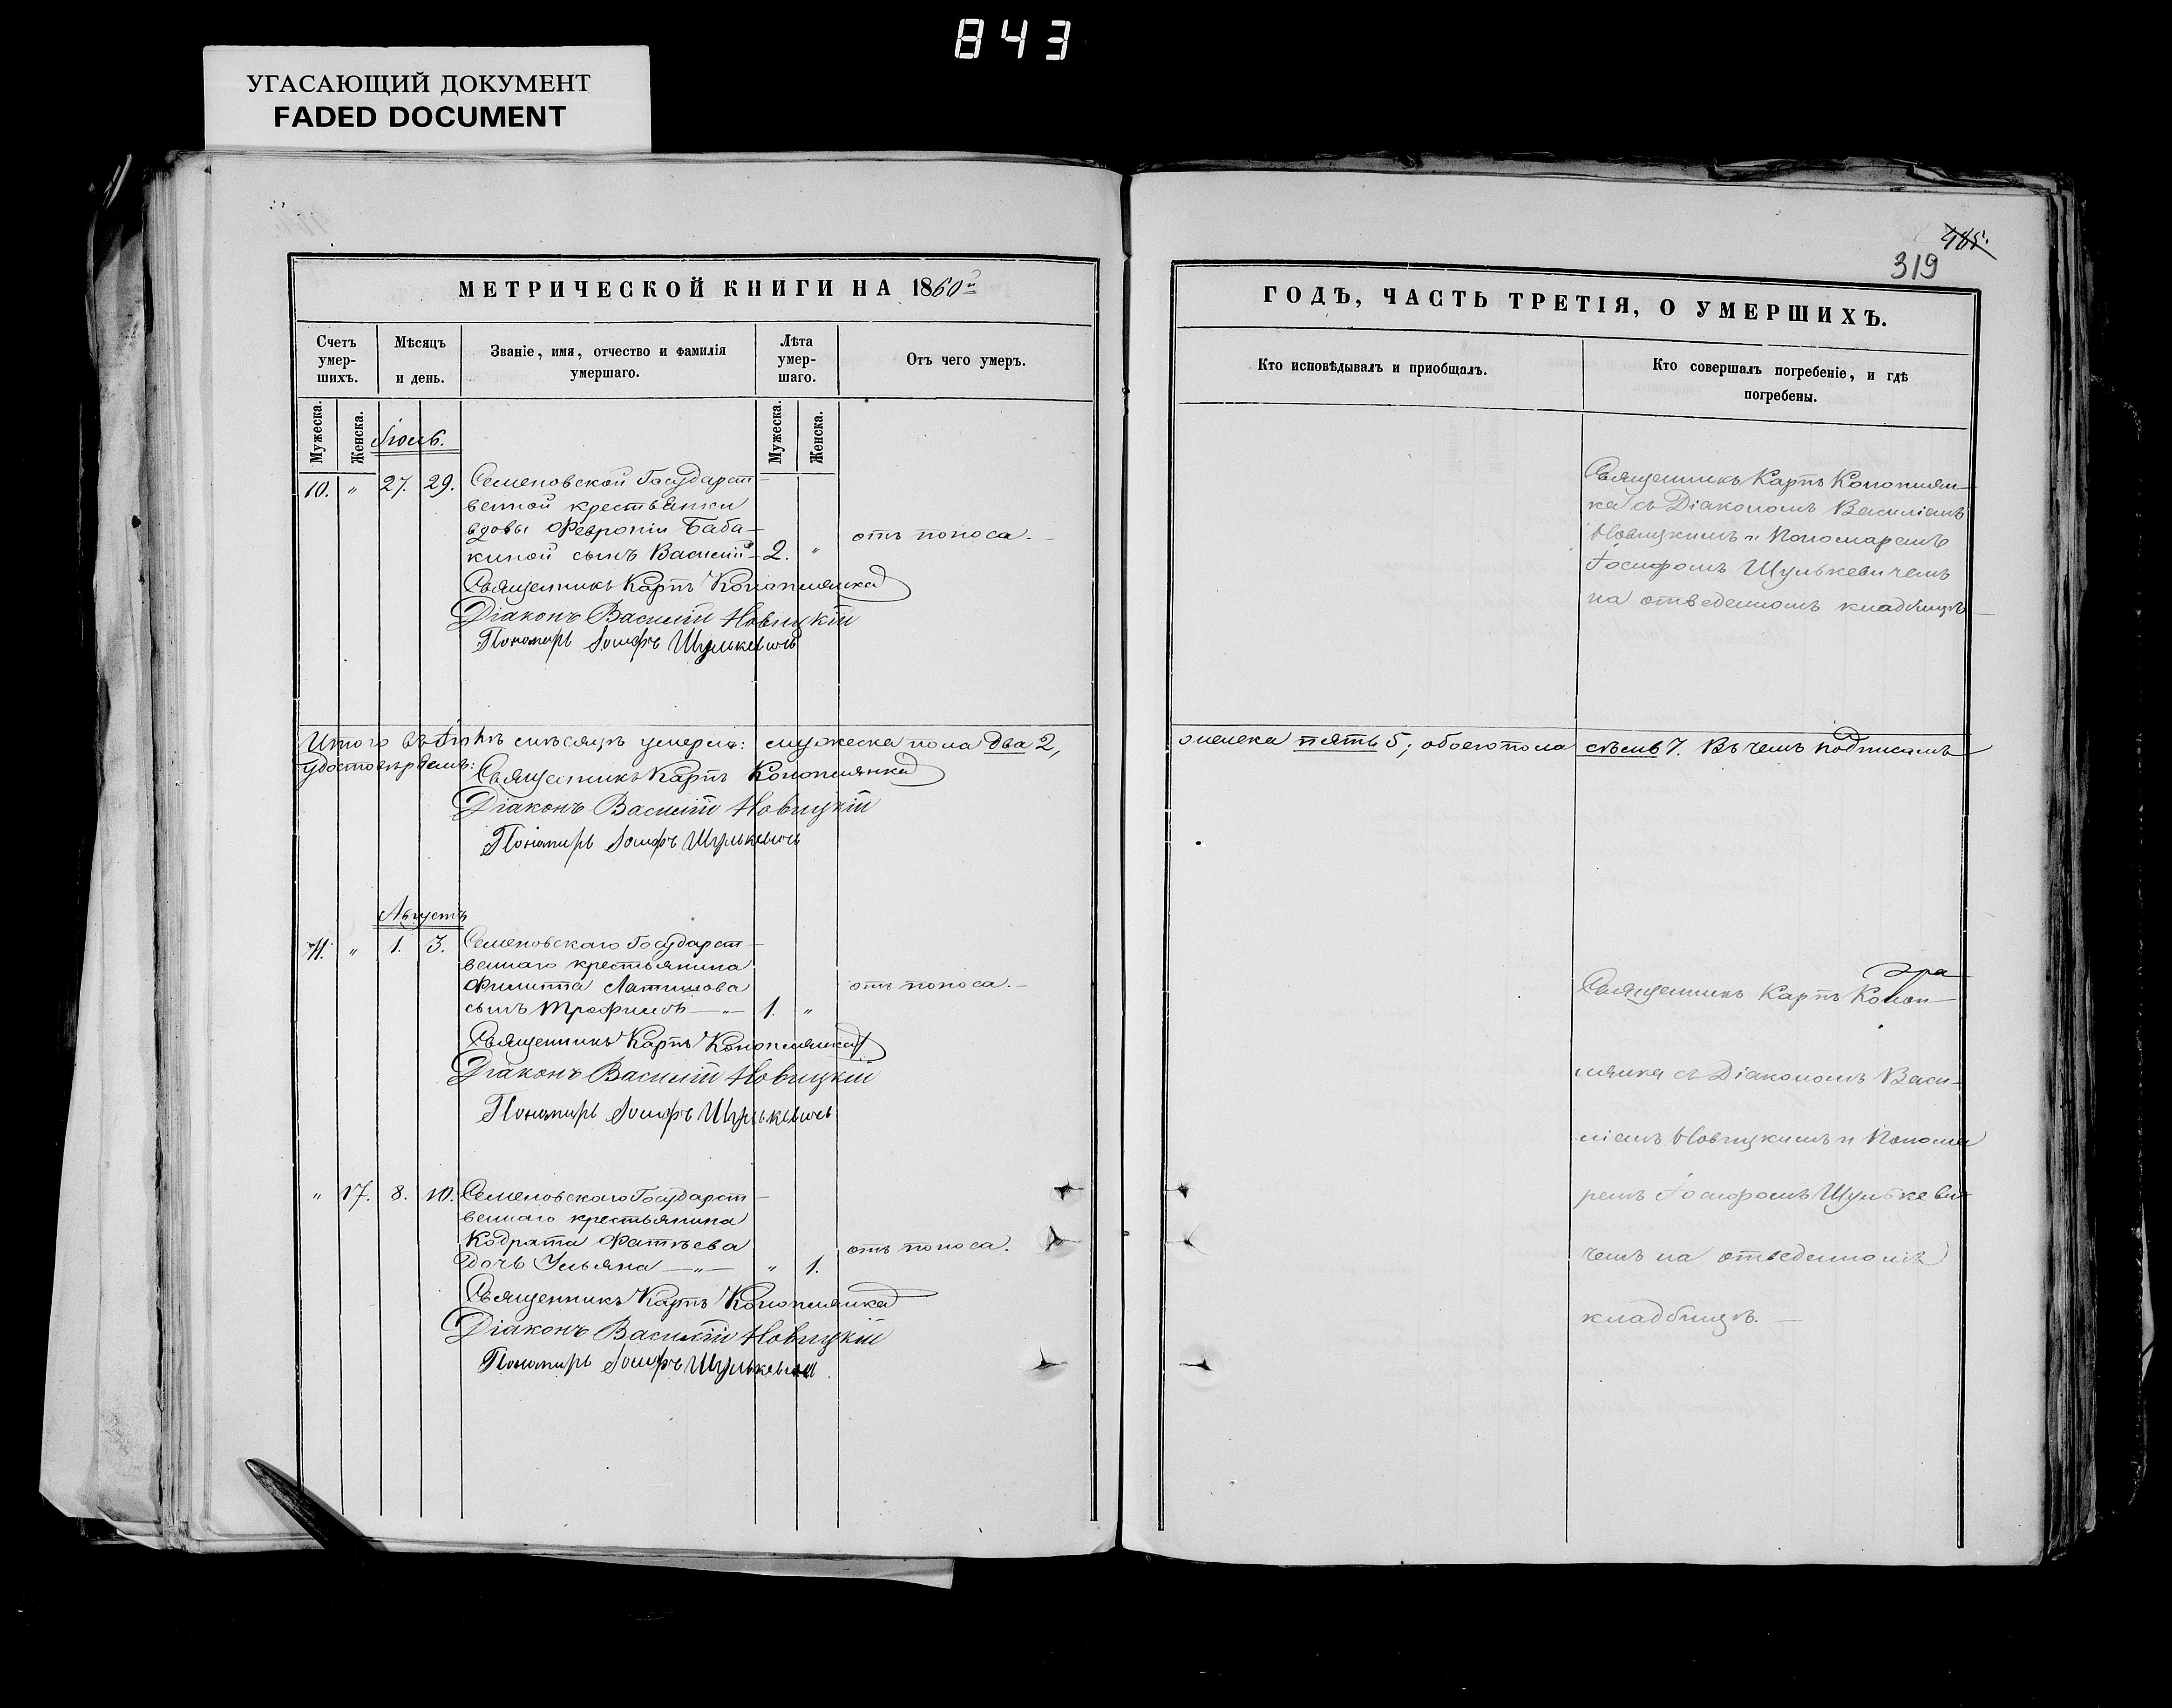 843
УГАСАЮЩИЙ ДОКУМЕНТ
FADED DOCUMENT
МЕТРИЧЕСКОЙ КНИГИ НА 1860й
Счетъ умер-шихъ.
Мѣсяцъ и день.
Званіе, имя, отчество и фамилія умершаго.
Лѣта умер-шаго.
Отъ чего умеръ.
Мужеска.
Женска.
Мужеска.
Женска.
Іюль.
10. „ 27. 29. Семеновской Государст-
венной крестьянки
вдовы Февроніи Баба-
киной сынъ Василій 2. „ отъ поноса.
Священникъ Карпъ Коноплянка
Діаконъ Василій Новицкій
Пономарь Іосифъ Шулькевичъ
Итого въ Іюлѣ мѣсяцѣ умерло: мужеска пола два 2,
удостовѣряемъ:
Священникъ Карпъ Коноплянка
Діаконъ Василій Новицкій
Пономарь Іосифъ Шулькевичъ
Августъ
11. „ 1. 3. Семеновскаго Государст-
веннаго крестьянина
Филиппа Латышова
сынъ Трофимъ — „ — 1. „ отъ поноса.
Священникъ Карпъ Коноплянка
Діаконъ Василій Новицкій
Пономарь Іосифъ Шулькевичъ
„ 17. 8. 10. Семеновскаго Государст-
веннаго крестьянина
Кодрата Фатѣева
дочь Ульяна — „ — „ 1. отъ поноса.
Священникъ Карпъ Коноплянка
Діаконъ Василій Новицкій
Пономарь Іосифъ Шулькевичъ
485.
319
ГОДЪ, ЧАСТЬ ТРЕТІЯ, О УМЕРШИХЪ.
Кто исповѣдывалъ и приобщалъ.
Кто совершалъ погребеніе, и гдѣ
погребены.
Священникъ Карпъ Коноплян-
ка съ Діакономъ Василіемъ
Новицкимъ и Пономаремъ
Іосифомъ Шулькевичемъ
на отведенномъ кладбищѣ
женска пять 5; обоего пола семь 7. Въ чемъ подписомъ
Священникъ Карпъ Коноп-
лянка съ Діакономъ Васи-
ліемъ Новицкимъ и Понома
ремъ Іосифомъ Шулькеви-
чемъ на отведенномъ
кладбищѣ.